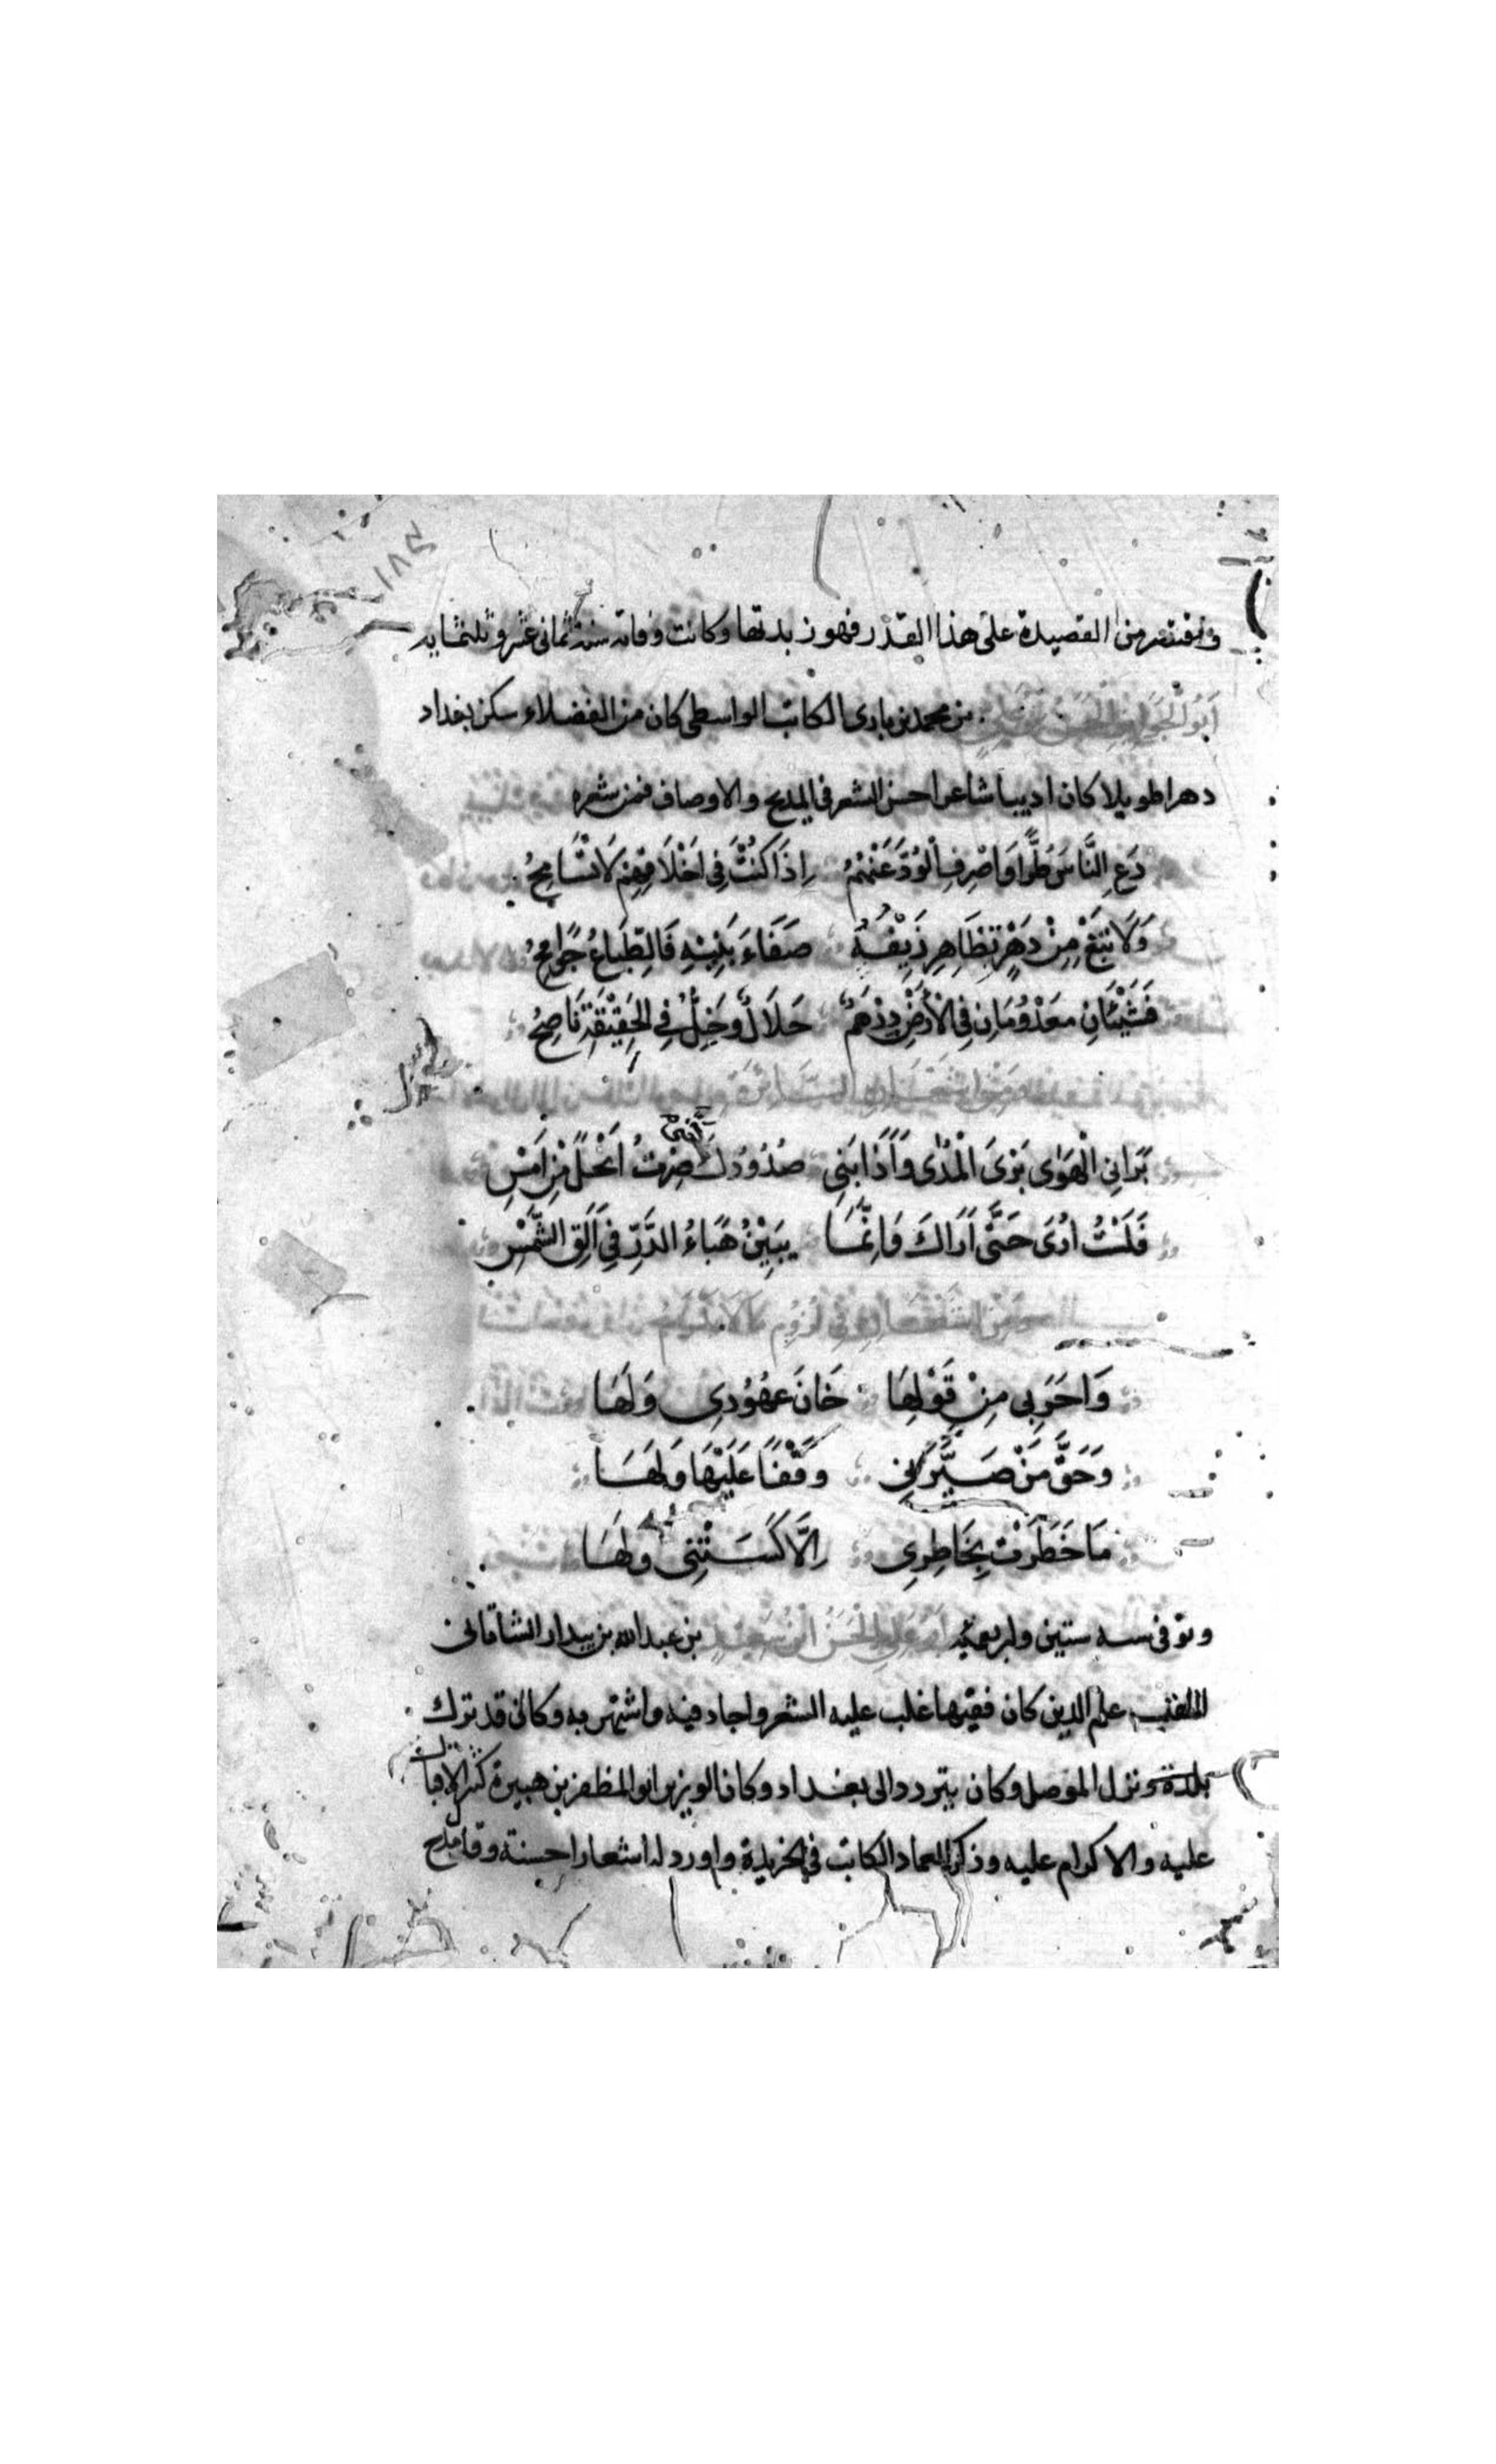 ونقتصر من القصيدة على هذا القدر فهو زبدتها وكانت وفاته سنة ثمانى عشر وثلثمايه
أَبُو الْجَوَائِزِ الْحَسَنُ بْنُ عَلِيٍّ بن محمد بن بارى الكاتب الواسطى كان من الفضلاء سكن بغداد
دهرا طويلا كان اديبا شاعرا حسن الشعر فى المديح والاوصاف فمن شعره
دَعِ النَّاسَ طُرًّا وَاصْرِفِ الْوُدَّ عَنْهُمُ إِذَا كُنْتَ فِى اَخْلَاقِهِمْ لَا تُسَامِحُ
وَلَا تَبْغِ مِنْ دَهْرٍ تَظَاهَرَ زَيْفُهُ صَفَاءَ بَنِيْهِ فَالطِّبَاعُ جَوَامِحُ
فَشَيْئَانِ مَعْدُوْمَانِ فِى الْأَرْضِ دِرْهَمٌ حَلَالٌ وَخِلٌّ فِى الْحَقِيْقَةِ نَاصِحُ
بَرَانِى الْهَوَى بَرْىَ الْمُدٰى وَأَذَابَنِى صُدُوْدُكَ حَتّٰى صِرْتُ اَنْحَلَ مِنْ اَمْسِ
فَلَسْتُ اُرٰى حَتَّى اَرَاكَ وَاِنَّمَا يَبِيْنُ هَبَاءُ الذَّرِّ فِى اَلَقِ الشَّمْسِ
وَاحَرَبِى مِنْ قَوْلِهَا خَانَ عُهُوْدِى وَلَهَا
وَحَقِّ مَنْ صَيَّرَنِى وَقْفًا عَلَيْهَا وَلَهَا
مَا خَطَرَتْ بِخَاطِرِى إِلَّا كَسَتْنِى وَلَهَا
وتوفى سنه ستين واربعمئه اَبُو عَلِى الْحَسَنُ ابْنُ سَعِيْدٍ بن عبد الله بن بيدار الشاتانى
الملقب علم الدين كان فقيها غلب عليه الشعر واجاد فيه واشتهر به وكان قد ترك
بلدة ونزل الموصل وكان يتردد الى بغداد وكان الوزير ابو المظفر بن هبيرة كثير الاقبال
عليه والاكرام عليه وذكره العماد الكاتب فى الخريدة واورد له اشعارا حسنة وقد مدح